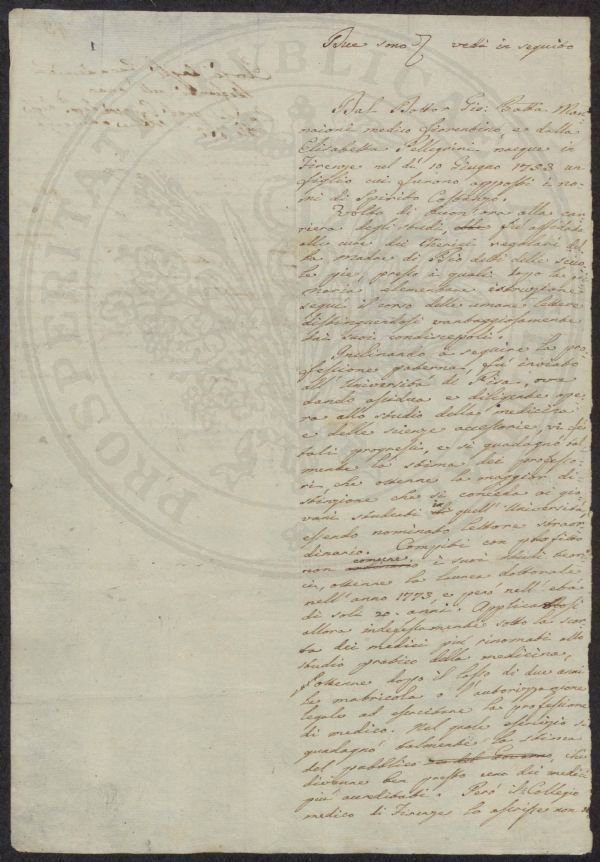 1
Due sono vedi in seguito
Dal Dottor Gio: Batta Man-
naioni medico fiorentino, e dalla
Elisabetta Pellegrini nacque in
Firenze nel dì 10 Giugno 1753 un
figlio cui furono apposti i no-
mi di Spirito Costanzo.
Volto di buon'ora alla car-
riera degli studi, fù affidato
alle cure dei Cherici regolari del-
la madre di Dio detti delle scuo-
le pie, presso ai quali dopo la pri-
maria elementare istruzione
seguì il corso delle umane lettere
distinguendosi vantaggiosamente
tra i suoi condiscepoli.
Inclinando a seguire la pro-
fessione paterna, fù inviato
all'Università di Pisa, ove
dando assidua e diligente ope-
ra allo studio della medicina
e delle scienze accessorie, vi fè
tali progressi, e si guadagnò tal-
mente la stima dei professo-
ri, che ottenne la maggior di-
stinzione che si conceda ai gio-
vani studenti in quell'Università
essendo nominato lettore straor-
dinario. Compiti con profitto
non comune i suoi studi teori-
ci, ottenne la laurea dottorale
nell'anno 1773, e però nell'età
di soli 20. anni. Applicatosi
allora indefessamente sotto la scor-
ta dei medici più rinomati allo
studio pratico della medicina,
ottenne dopo il lasso di due anni
la matricola o l'autorizzazione
legale ad esercitare la professione
di medico. Nel quale esercizio si
guadagnò talmente la stima
del pubblico che
divenne ben presto uno dei medici
più accreditati. Però il Collegio
medico di Firenze lo ascrisse non
PROSPERITATI PUBLICAE